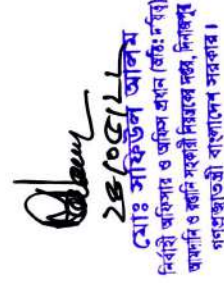 ২৪/০৫/২২
মোঃ সফিউল আলম
নির্বাহী অফিসার ও অফিস প্রধান (অতিঃ দায়িত্ব)
আমদানি ও রপ্তানি সহকারী নিয়ন্ত্রকের দপ্তর, দিনাজপুর
গণপ্রজাতন্ত্রী বাংলাদেশ সরকার।